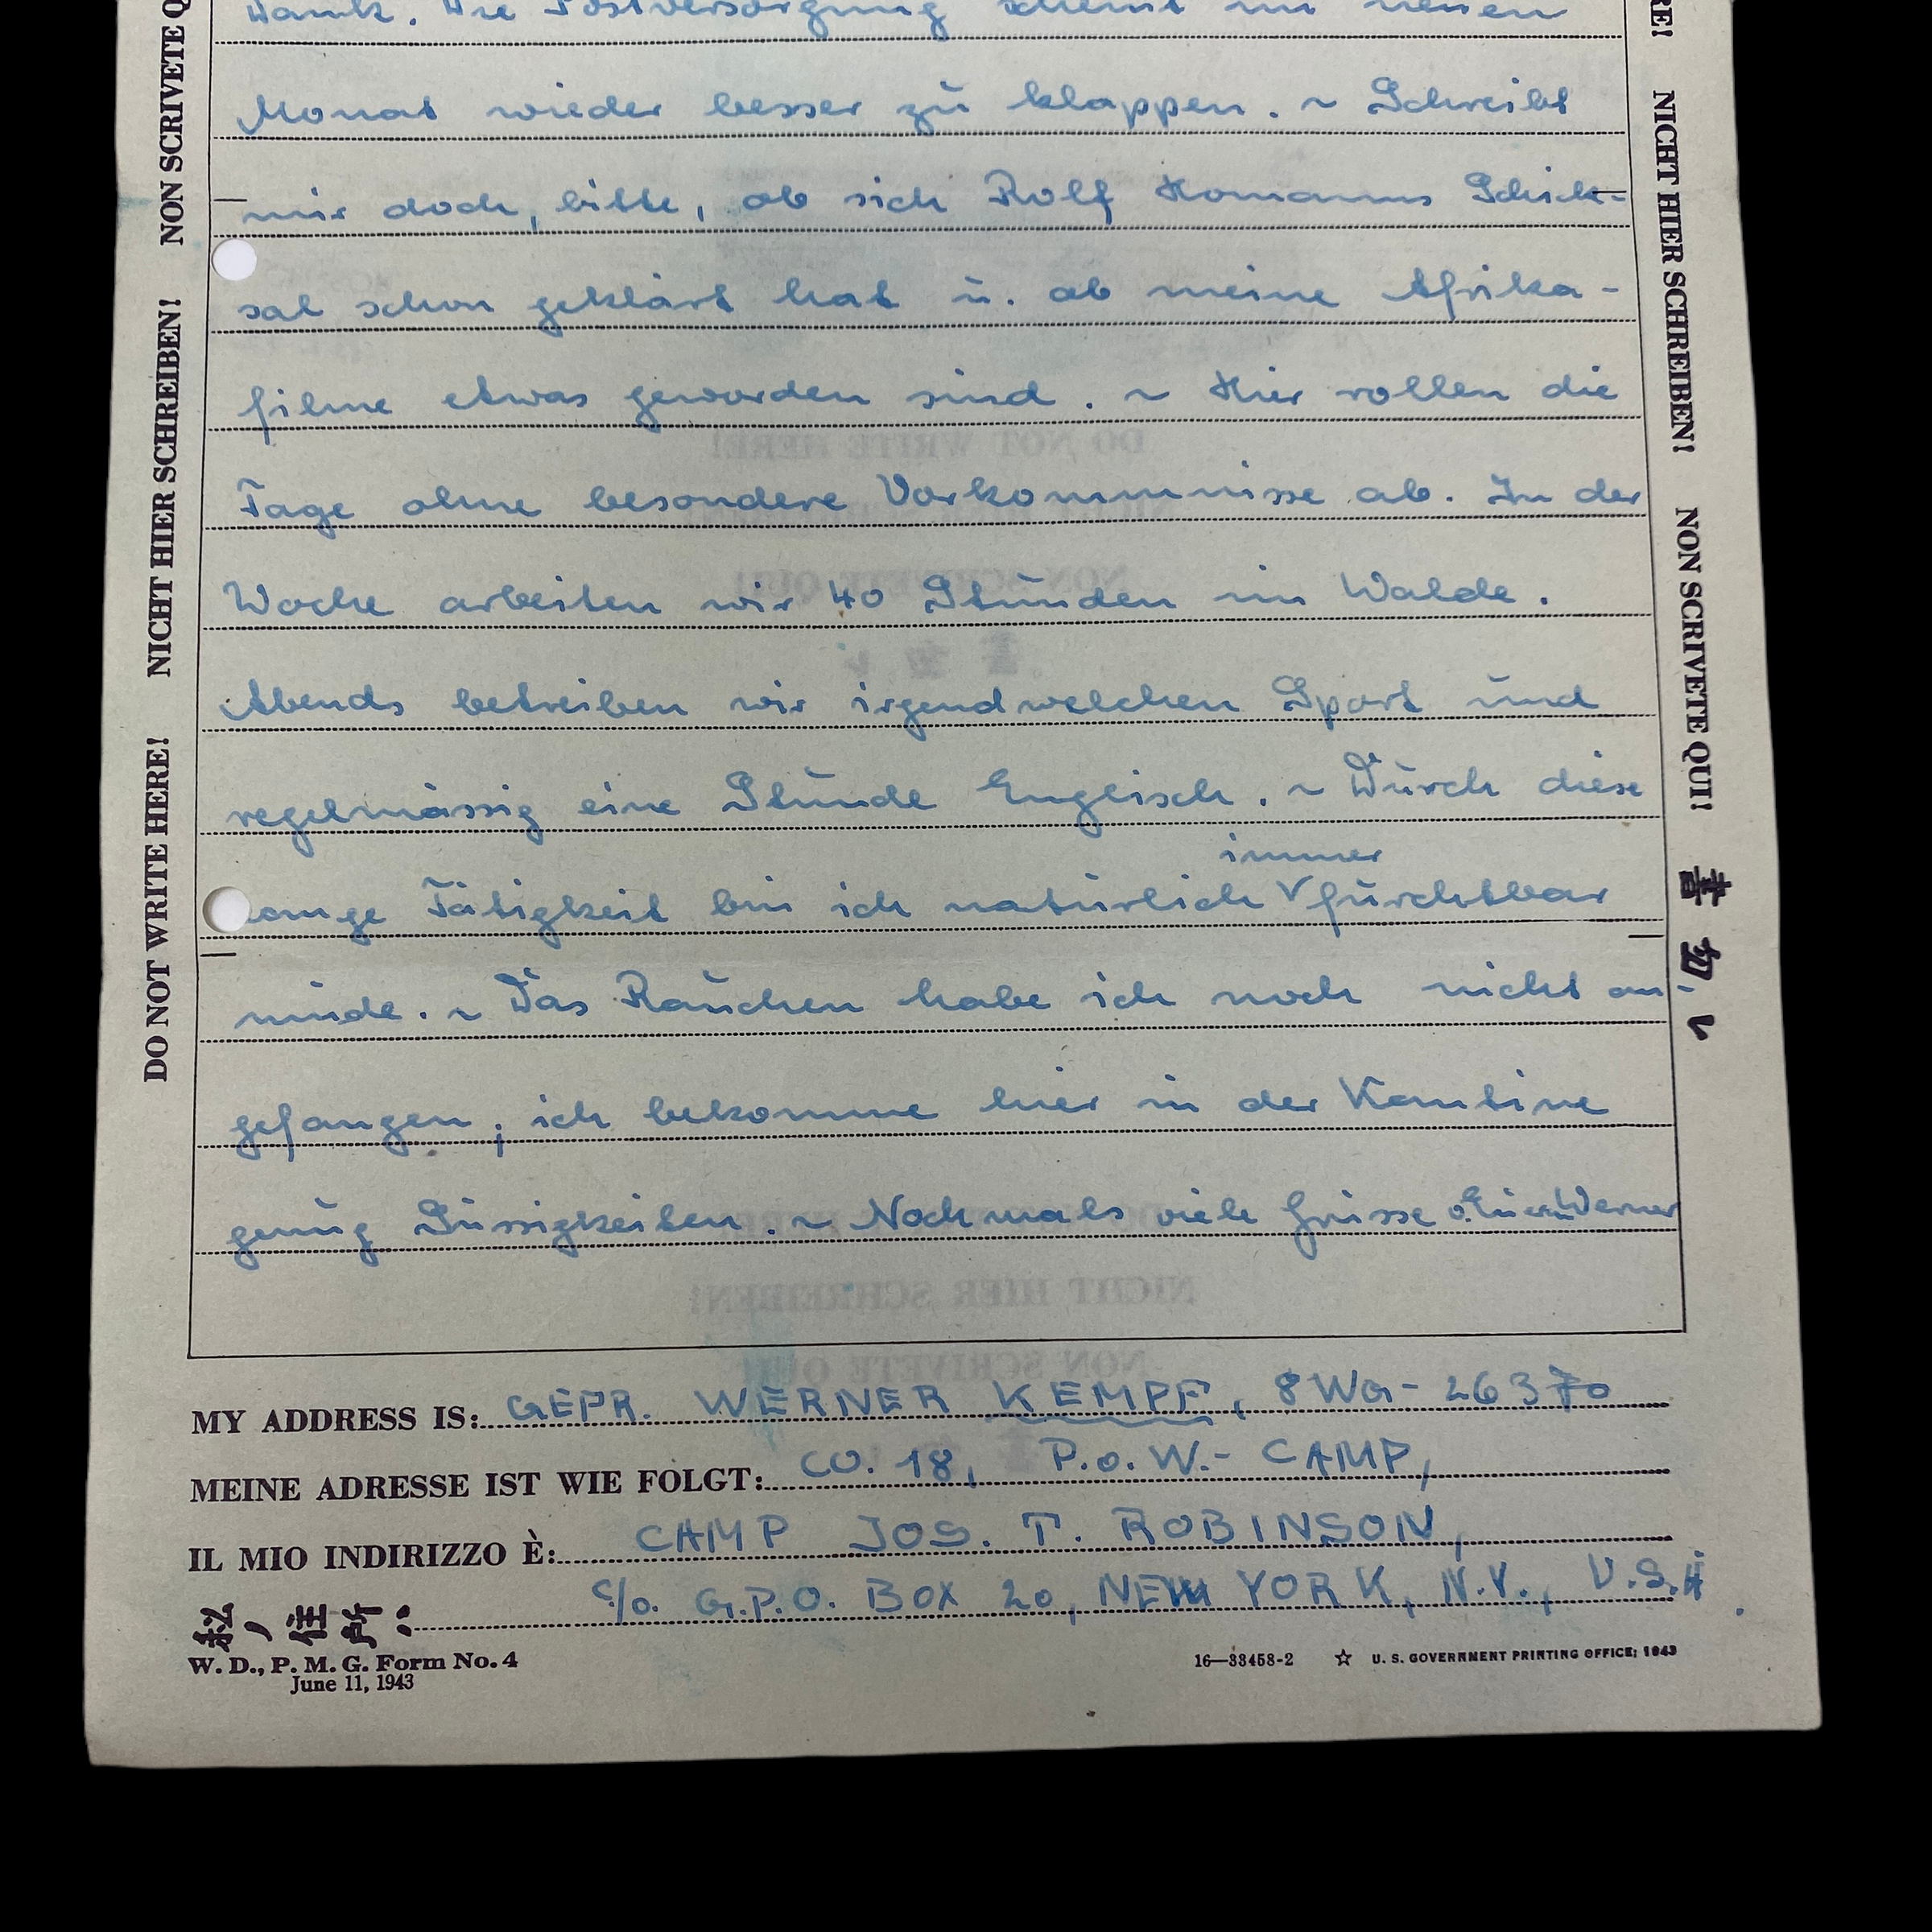 Dank. Die Postversorgung scheint im neuen
Monat wieder besser zu klappen. ~ Schreibt
mir doch, bitte, ob sich Rolf Homanns Schick-
sal schon geklärt hat u. ob meine Afrika-
filme etwas geworden sind. ~ Hier rollen die
Tage ohne besondere Vorkommnisse ab. In der
Woche arbeiten wir 40 Stunden im Walde.
Abends betreiben wir irgendwelchen Sport und
regelmässig eine Stunde Englisch. ~ Durch diese
immer
lange Tätigkeit bin ich natürlich furchtbar
müde. ~ Das Rauchen habe ich noch nicht an-
gefangen; ich bekomme hier in der Kantine
genug Süssigkeiten. ~ Nochmals viele Grüsse v. Euerm Werner
MY ADDRESS IS: GEFR. WERNER KEMPF, 8WG-26370
MEINE ADRESSE IST WIE FOLGT: CO. 18, P.o.W.- CAMP,
IL MIO INDIRIZZO È: CAMP JOS. T. ROBINSON,
私ノ住所: c/o. G.P.O. BOX 20, NEW YORK, N.Y., U.S.A.
W. D., P. M. G. Form No. 4
June 11, 1943
16—33458-2 ☆ U. S. GOVERNMENT PRINTING OFFICE: 1943
DO NOT WRITE HERE! NICHT HIER SCHREIBEN! NON SCRIVETE Q
RE! NICHT HIER SCHREIBEN! NON SCRIVETE QUI! 書クナ
DO NOT WRITE HERE!
NON SCRIVETE QUI!
NICHT HIER SCHREIBEN!
NON SCRIVETE QUI!